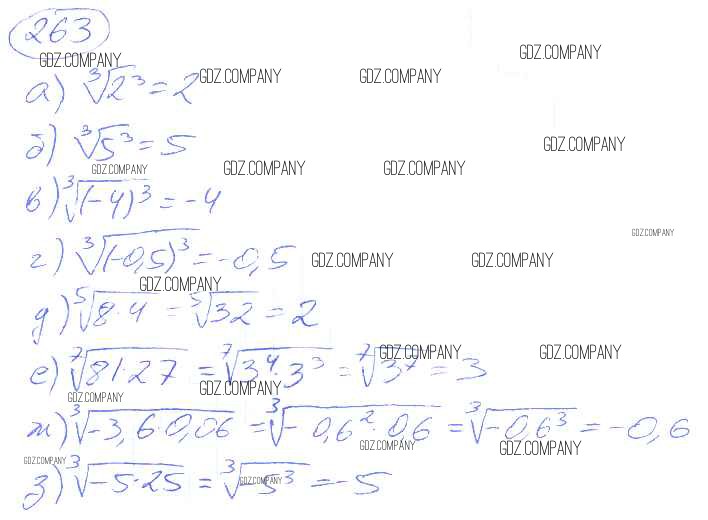 263
GDZ.COMPANY GDZ.COMPANY
а) ∛2³ = 2 GDZ.COMPANY GDZ.COMPANY
б) ∛5³ = 5 GDZ.COMPANY
GDZ.COMPANY GDZ.COMPANY GDZ.COMPANY
в) ∛(-4)³ = -4
GDZ.COMPANY
г) ∛(-0,5)³ = -0,5 GDZ.COMPANY GDZ.COMPANY
GDZ.COMPANY
д) ⁵√8·4 = ⁵√32 = 2
GDZ.COMPANY GDZ.COMPANY
е) ⁷√81·27 = ⁷√3⁴·3³ = ⁷√3⁷ = 3
GDZ.COMPANY GDZ.COMPANY
ж) ∛-3,6·0,06 = ∛-0,6²·0,6 = ∛-0,6³ = -0,6
GDZ.COMPANY GDZ.COMPANY
GDZ.COMPANY
з) ∛-5·25 = ∛-5³ = -5
GDZ.COMPANY